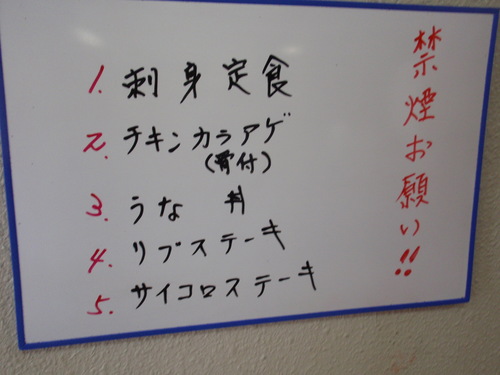 禁煙お願い!!
1. 刺身定食
2. チキンカラアゲ
(骨付)
3. うな丼
4. リブステーキ
5. サイコロステーキ